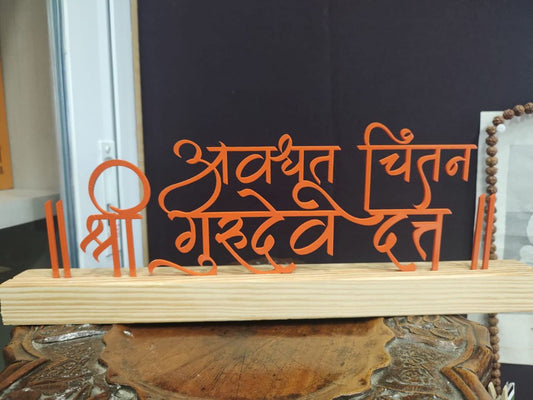 अवधूत चिंतन
॥ श्री गुरुदेव दत्त ॥